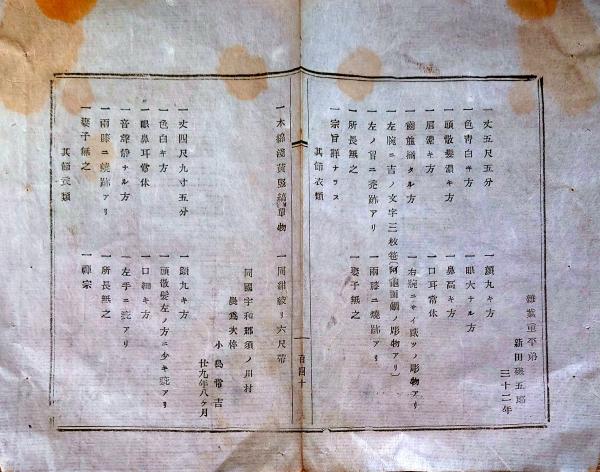 雑業重平弟
新田磯五郎
三十二年
一丈五尺五分 一顔丸キ方
一色青白キ方 一眼大ナル方
一頭散髪濃キ方 一鼻高キ方
一眉濃キ方 一口耳常体
一歯並揃タル方
一左腕ニ吉ノ文字三枚
一左ノ肩ニ灸跡アリ 一両膝ニ焼跡アリ
一所長無之 一妻子無之
一宗旨詳ナラス
其節衣類
一木綿浅黄竪縞単物 一同紺絞リ六尺帯
百四十
同國宇和郡須ノ川村
小島常吉
廿九年八ヶ月
一丈四尺九寸五分 一顔丸キ方
一色白キ方 一頭散髪左ノ方ニ少キ疵アリ
一眼鼻耳常体 一口細キ方
一音聲静ナル方 一左手ニ疵アリ
一両膝ニ焼跡アリ 一所長無之
一妻子無之 一禅宗
其節衣類